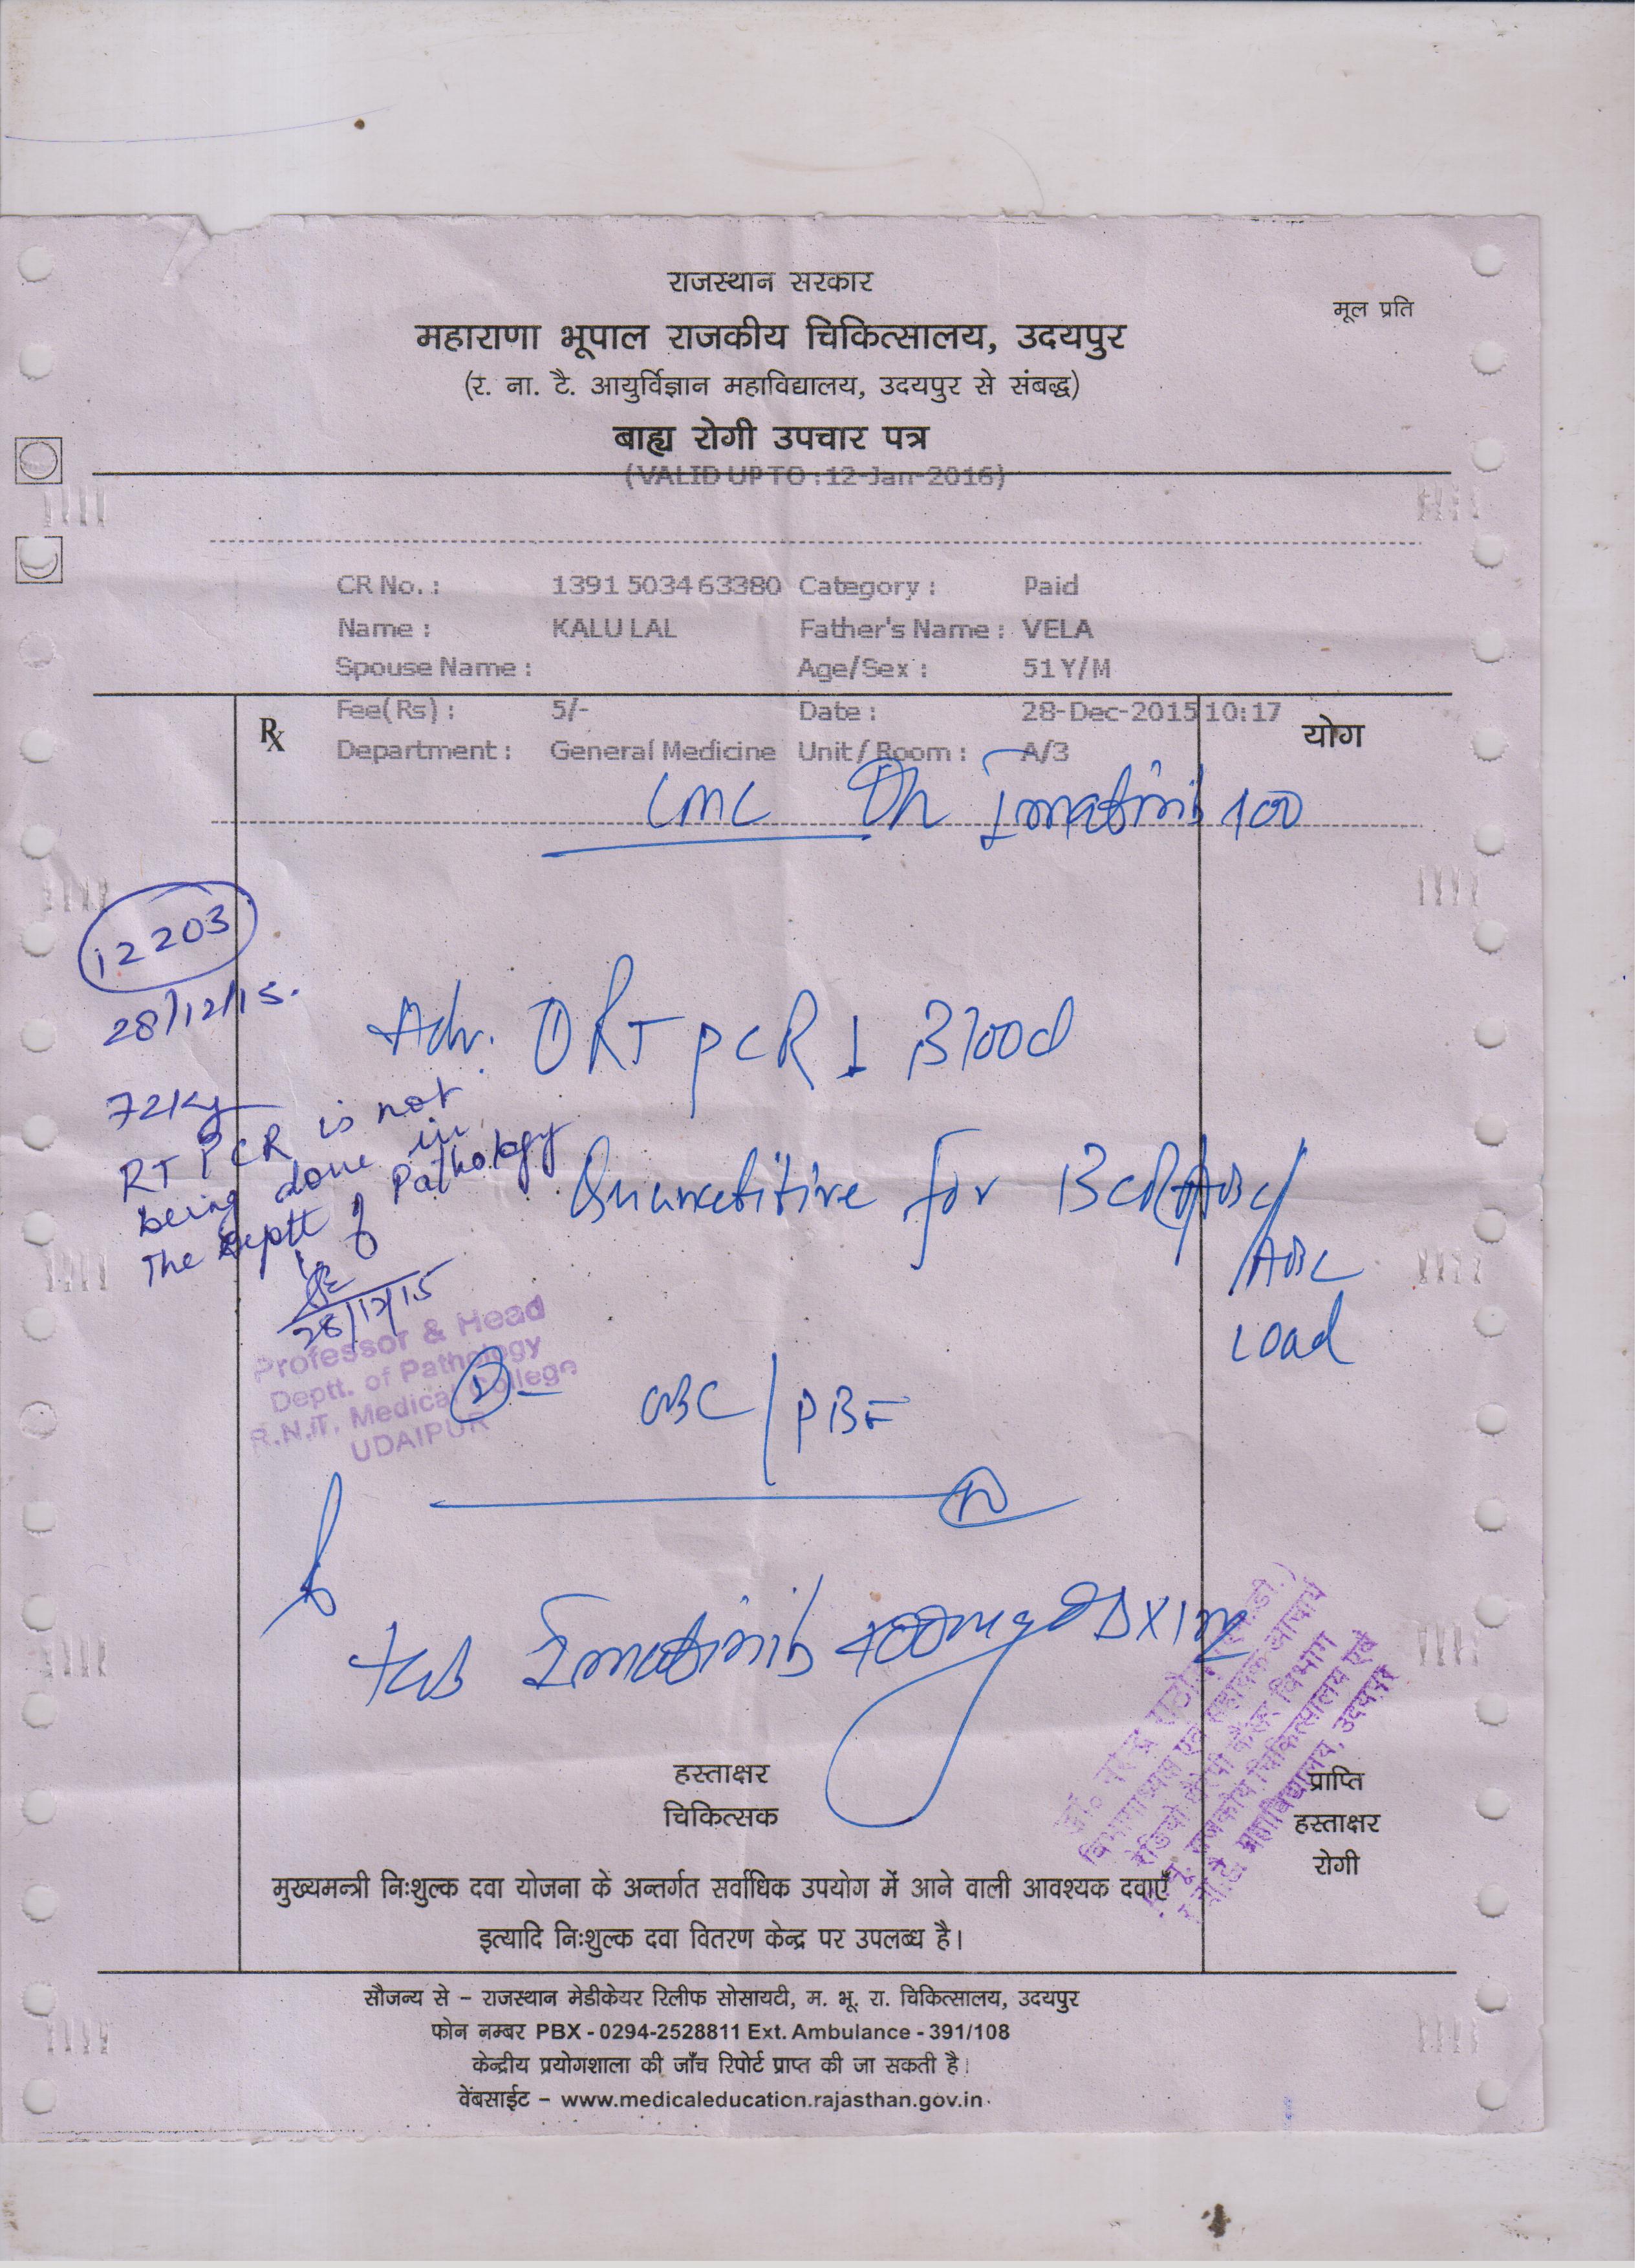 राजस्थान सरकार
मूल प्रति
महाराणा भूपाल राजकीय चिकित्सालय, उदयपुर
(र. ना. टै. आयुर्विज्ञान महाविद्यालय, उदयपुर से संबद्ध)
बाह्य रोगी उपचार पत्र
(VALID UP TO : 12-Jan-2016)
CR No. : 1391 5034 63380 Category : Paid
Name : KALU LAL Father's Name : VELA
Spouse Name : Age/Sex : 51 Y/M
Fee(Rs) : 5/- Date : 28-Dec-2015 10:17
Rx योग
Department : General Medicine Unit / Room : A/3
CML On Imatinib 400
12203
28/12/15.
Adv. RT PCR Blood
72Kg
RT PCR is not
being done in
The Deptt of Pathology
28/12/15
Quantitive for BCR
ABL
Load
Professor & Head
Deptt. of Pathology
R.N.T. Medical College
UDAIPUR
CBC / PBF
Tab Imatinib 400mg OD X 1m
विभागाध्यक्ष एवं सहायक आचार्य
कैंसर विभाग
राजकीय चिकित्सालय एवं
महाविद्यालय, उदयपुर
हस्ताक्षर
चिकित्सक
प्राप्ति
हस्ताक्षर
रोगी
मुख्यमन्त्री निःशुल्क दवा योजना के अन्तर्गत सर्वाधिक उपयोग में आने वाली आवश्यक दवाएँ
इत्यादि निःशुल्क दवा वितरण केन्द्र पर उपलब्ध है।
सौजन्य से – राजस्थान मेडीकेयर रिलीफ सोसायटी, म. भू. रा. चिकित्सालय, उदयपुर
फोन नम्बर PBX - 0294-2528811 Ext. Ambulance - 391/108
केन्द्रीय प्रयोगशाला की जाँच रिपोर्ट प्राप्त की जा सकती है।
वेंबसाईट – www.medicaleducation.rajasthan.gov.in